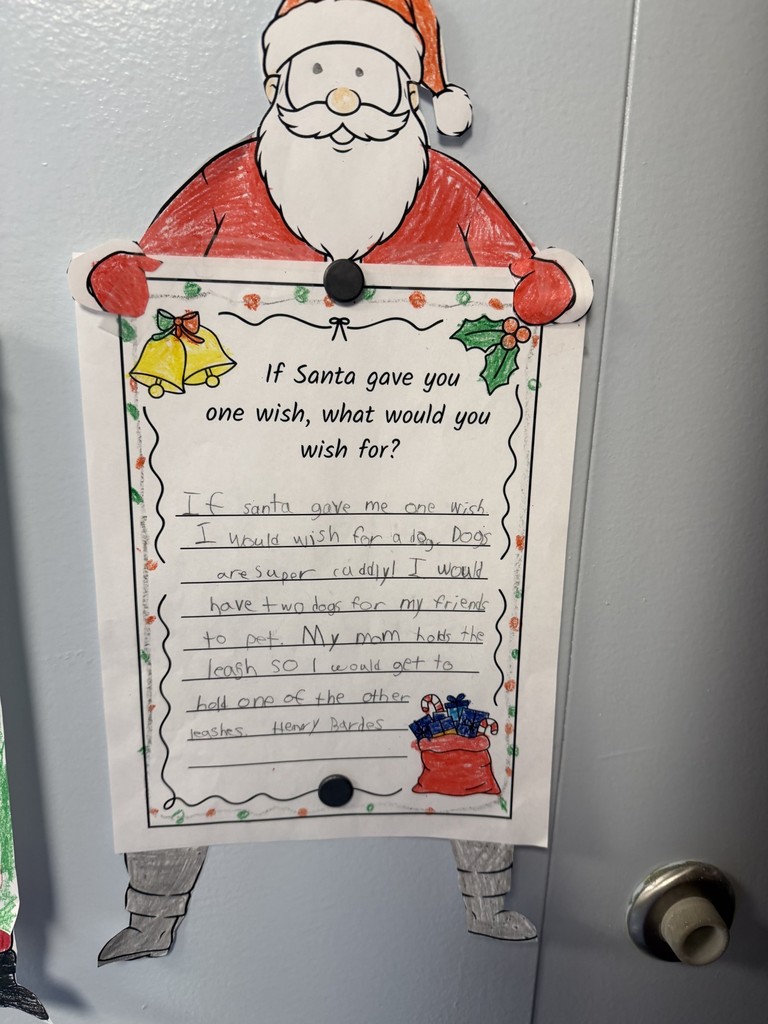 If Santa gave you
one wish, what would you
wish for?
If santa gave me one wish
I would wish for a dog. Dogs
are super cuddly! I would
have two dogs for my friends
to pet. My mom holds the
leash so I would get to
hold one of the other
leashes. Henry Bardes